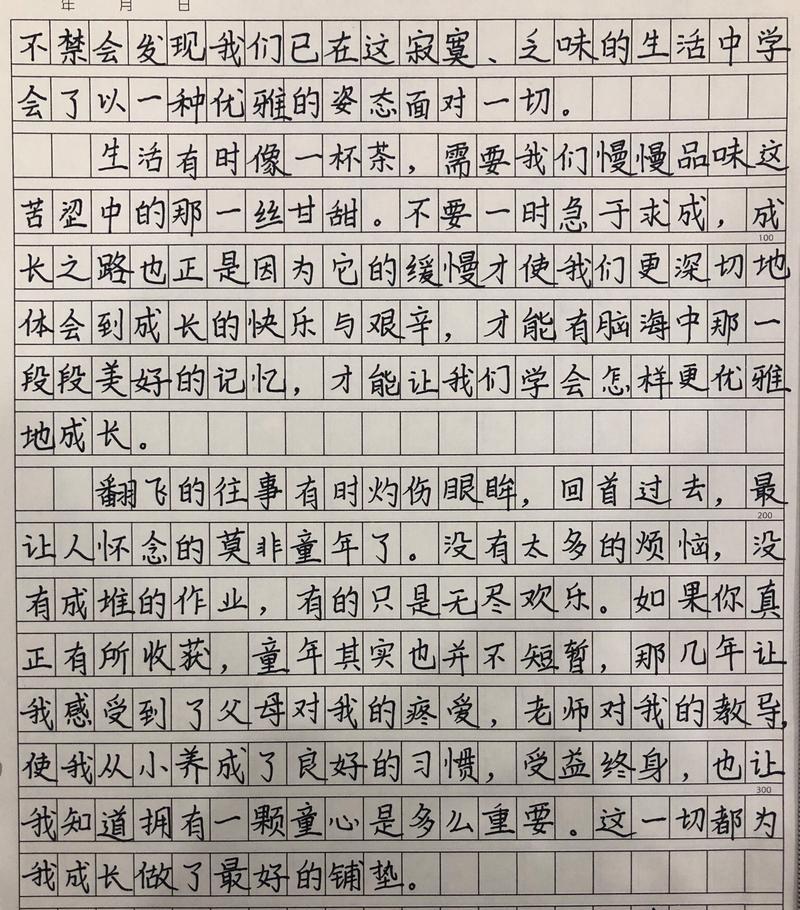 年 月 日
不禁会发现我们已在这寂寞、乏味的生活中学
会了以一种优雅的姿态面对一切。
生活有时像一杯茶，需要我们慢慢品味这
苦涩中的那一丝甘甜。不要一时急于求成，成
100
长之路也正是因为它的缓慢才使我们更深切地
体会到成长的快乐与艰辛，才能有脑海中那一
段段美好的记忆，才能让我们学会怎样更优雅
地成长。
翻飞的往事有时灼伤眼眸，回首过去，最
200
让人怀念的莫非童年了。没有太多的烦恼，没
有成堆的作业，有的只是无尽欢乐。如果你真
正有所收获，童年其实也并不短暂，那几年让
我感受到了父母对我的疼爱，老师对我的教导，
使我从小养成了良好的习惯，受益终身，也让
300
我知道拥有一颗童心是多么重要。这一切都为
我成长做了最好的铺垫。